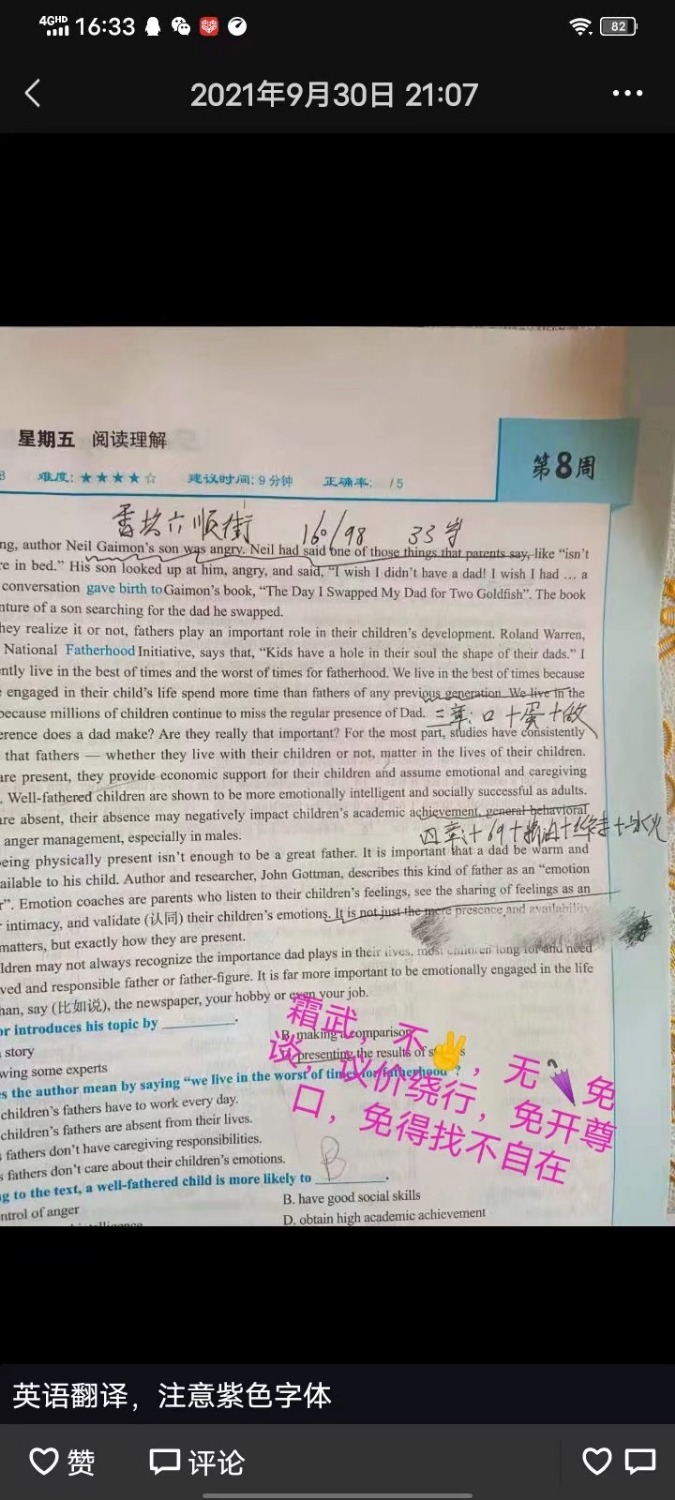 4GHD 16:33 82
2021年9月30日 21:07
星期五 阅读理解
第8周
难度：★★★★☆ 建议时间：9分钟 正确率： /5
六顺街 160/98 33岁
ng, author Neil Gaimon's son was angry. Neil had said one of those things that parents say, like “isn't
e in bed.” His son looked up at him, angry, and said, “I wish I didn't have a dad! I wish I had … a
conversation gave birth to Gaimon's book, “The Day I Swapped My Dad for Two Goldfish”. The book
nture of a son searching for the dad he swapped.
hey realize it or not, fathers play an important role in their children's development. Roland Warren,
National Fatherhood Initiative, says that, “Kids have a hole in their soul the shape of their dads.” I
ntly live in the best of times and the worst of times for fatherhood. We live in the best of times because
engaged in their child's life spend more time than fathers of any previous generation. We live in the
because millions of children continue to miss the regular presence of Dad.
二章：口+蛋+做
erence does a dad make? Are they really that important? For the most part, studies have consistently
that fathers — whether they live with their children or not, matter in the lives of their children.
are present, they provide economic support for their children and assume emotional and caregiving
. Well-fathered children are shown to be more emotionally intelligent and socially successful as adults.
are absent, their absence may negatively impact children's academic achievement, general behavioral
anger management, especially in males.
四章：+69+
eing physically present isn't enough to be a great father. It is important that a dad be warm and
ailable to his child. Author and researcher, John Gottman, describes this kind of father as an “emotion
r”. Emotion coaches are parents who listen to their children's feelings, see the sharing of feelings as an
r intimacy, and validate (认同) their children's emotions. It is not just the mere presence and availability
matters, but exactly how they are present.
ldren may not always recognize the importance dad plays in their lives, most children long for and need
ved and responsible father or father-figure. It is far more important to be emotionally engaged in the life
han, say (比如说), the newspaper, your hobby or even your job.
or introduces his topic by ________.
story
B. making a comparison
wing some experts
presenting the results of
es the author mean by saying “we live in the worst of times for fatherhood”?
children's fathers have to work every day.
children's fathers are absent from their lives.
fathers don't have caregiving responsibilities.
s fathers don't care about their children's emotions.
B
ng to the text, a well-fathered child is more likely to ________.
ntrol of anger
B. have good social skills
D. obtain high academic achievement
霜武，不✌️，无🌂免
谈，议价绕行，免开尊
口，免得找不自在
英语翻译，注意紫色字体
赞 评论